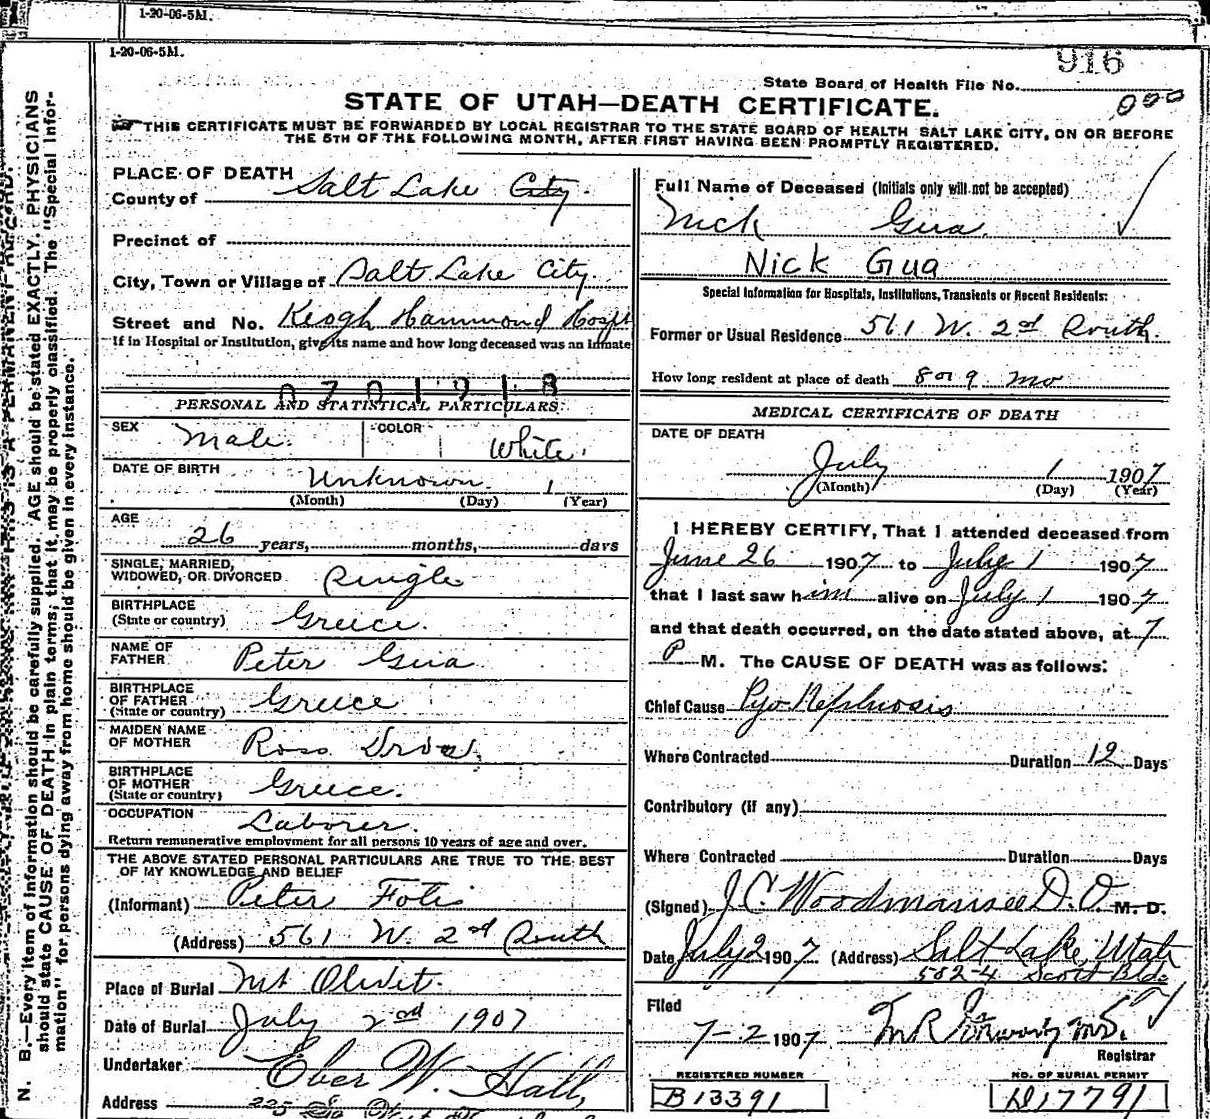 1-20-06-5M.
1-20-06-5M.
916
State Board of Health File No.
000
STATE OF UTAH—DEATH CERTIFICATE.
THIS CERTIFICATE MUST BE FORWARDED BY LOCAL REGISTRAR TO THE STATE BOARD OF HEALTH SALT LAKE CITY, ON OR BEFORE
THE 5TH OF THE FOLLOWING MONTH, AFTER FIRST HAVING BEEN PROMPTLY REGISTERED.
N. B.—Every item of information should be carefully supplied. AGE should be stated EXACTLY. PHYSICIANS
should state CAUSE OF DEATH in plain terms, that it may be properly classified. The "Special Infor-
mation" for persons dying away from home should be given in every instance.
PLACE OF DEATH
County of Salt Lake City.
Precinct of
City, Town or Village of Salt Lake City.
Street and No. Keogh Hammond Hospt
If in Hospital or Institution, give its name and how long deceased was an Inmate
PERSONAL AND STATISTICAL PARTICULARS:
SEX Male. COLOR White.
DATE OF BIRTH Unknown. 1
(Month) (Day) (Year)
AGE
26 years, months, days
SINGLE, MARRIED,
WIDOWED, OR DIVORCED Single
BIRTHPLACE
(State or country) Greece.
NAME OF
FATHER Peter Gua
BIRTHPLACE
OF FATHER
(State or country) Greece
MAIDEN NAME
OF MOTHER Rosa
BIRTHPLACE
OF MOTHER
(State or country) Greece.
OCCUPATION Laborer.
Return remunerative employment for all persons 10 years of age and over.
THE ABOVE STATED PERSONAL PARTICULARS ARE TRUE TO THE BEST
OF MY KNOWLEDGE AND BELIEF
(Informant) Peter Foti
(Address) 561 W. 2nd South
Place of Burial Mt Olivet.
Date of Burial July 2nd 1907
Undertaker Eber W. Hall,
Address 225 So West Temple
Full Name of Deceased (Initials only will not be accepted)
Nick Gua.
Nick Gua
Special Information for Hospitals, Institutions, Transients or Recent Residents:
Former or Usual Residence 561 W. 2nd South.
How long resident at place of death 8 or 9 mo
MEDICAL CERTIFICATE OF DEATH
DATE OF DEATH
July 1 1907
(Month) (Day) (Year)
I HEREBY CERTIFY, That I attended deceased from
June 26 1907 to July 1 1907
that I last saw him alive on July 1 1907
and that death occurred, on the date stated above, at 7
P M. The CAUSE OF DEATH was as follows:
Chief Cause Pyo Nephrosis
Where Contracted Duration 12 Days
Contributory (if any)
Where Contracted Duration Days
(Signed) J.C. Woodmansee D.O. M. D.
Date July 2 1907 (Address) Salt Lake, Utah
502-4 Scott Bld.
Filed
7-2 1907
Registrar
REGISTERED NUMBER NO. OF BURIAL PERMIT
B 13391 D17791